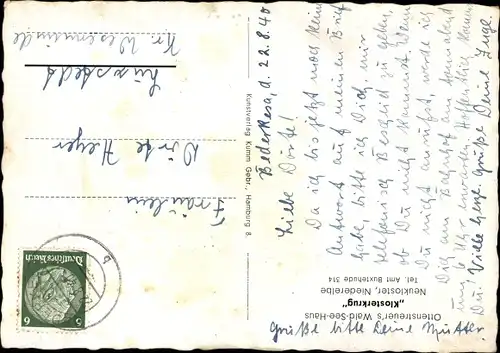 Bederkesa, d. 22.8.40
Liebe Dörte!
Da ich bis jetzt noch keine
Antwort auf meinen Brief
habe, bitte ich Dich, mir
telefonisch Bescheid zu geben,
ob Du nicht kommst. Wenn
Du nicht anrufst, werde ich
Dich am Bahnhof am Sonnabend
um Uhr erwarten. Hoffentlich kommst
Du. Viele herzl. Grüße Deine Inge
Grüße bitte Deine Mutter.
Ottensteuer's Wald-See-Haus
„Klosterkrug"
Neukloster, Niederelbe
Tel. Amt Buxtehude 314
Kunstverlag Kumm Gebr., Hamburg 8
Deutsches Reich
6 6
Fräulein
Dörte Heyer
Lunestedt
Kr. Wesermünde